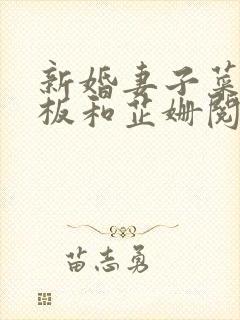 新婚妻子菜
板和芷姗阅
苗志勇